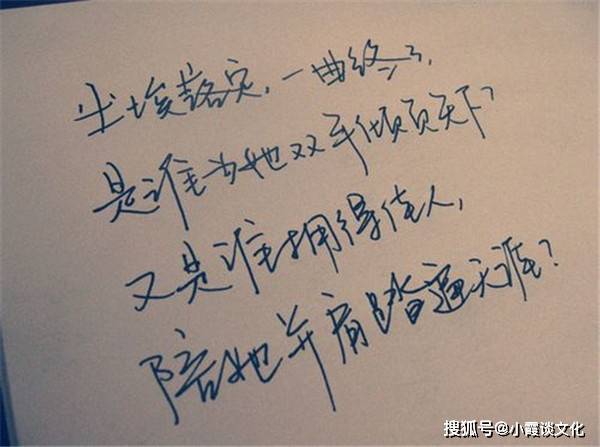 尘埃落定,一曲终了,
是谁为她双手倾天下?
又是谁拥得佳人,
陪她并肩踏遍天涯?
搜狐号@小霞谈文化